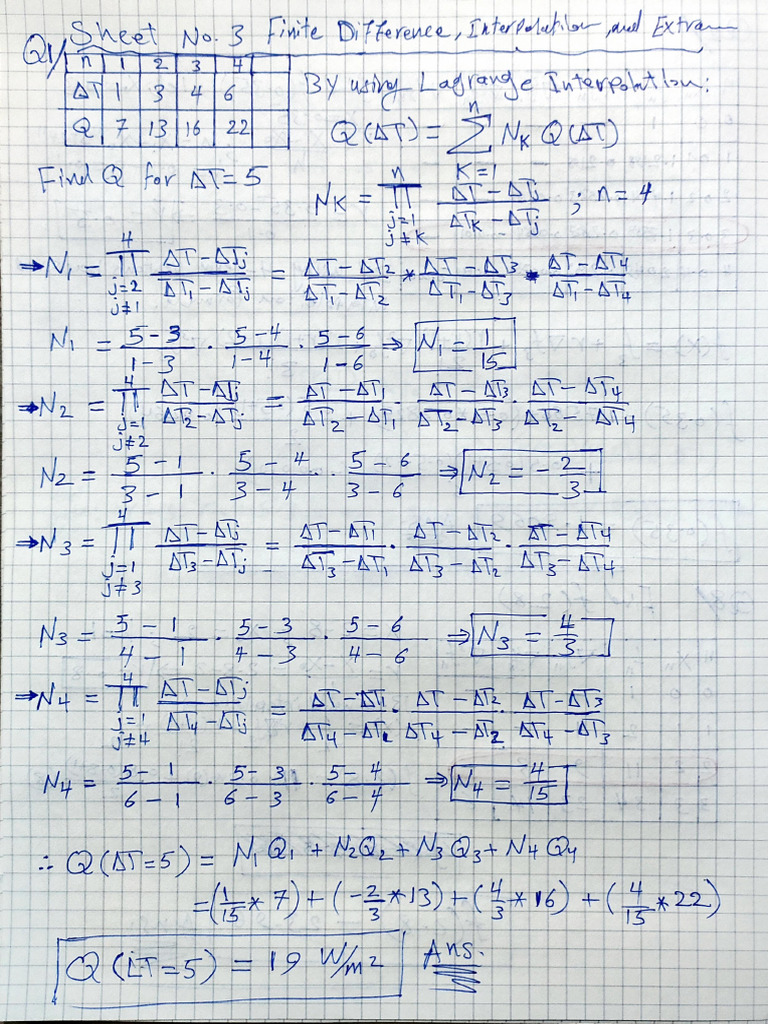 Sheet No. 3 Finite Difference, Interpolation, and Extra
Q1/
n 1 2 3 4
ΔT 1 3 4 6
Q 7 13 16 22
By using Lagrange Interpolation:
Q(ΔT) = Σ_{K=1}^{n} N_K Q(ΔT)
Find Q for ΔT=5
N_K = ∏_{j=1, j≠K}^{n} (ΔT-ΔTj)/(ΔT_K-ΔTj) ; n=4
⇒N1 = ∏_{j=2, j≠1}^{4} (ΔT-ΔTj)/(ΔT1-ΔTj) = (ΔT-ΔT2)/(ΔT1-ΔT2) * (ΔT-ΔT3)/(ΔT1-ΔT3) * (ΔT-ΔT4)/(ΔT1-ΔT4)
N1 = (5-3)/(1-3) · (5-4)/(1-4) · (5-6)/(1-6) ⇒ N1 = 1/15
⇒N2 = ∏_{j=1, j≠2}^{4} (ΔT-ΔTj)/(ΔT2-ΔTj) = (ΔT-ΔT1)/(ΔT2-ΔT1) · (ΔT-ΔT3)/(ΔT2-ΔT3) · (ΔT-ΔT4)/(ΔT2-ΔT4)
N2 = (5-1)/(3-1) · (5-4)/(3-4) · (5-6)/(3-6) ⇒ N2 = -2/3
⇒N3 = ∏_{j=1, j≠3}^{4} (ΔT-ΔTj)/(ΔT3-ΔTj) = (ΔT-ΔT1)/(ΔT3-ΔT1) · (ΔT-ΔT2)/(ΔT3-ΔT2) · (ΔT-ΔT4)/(ΔT3-ΔT4)
N3 = (5-1)/(4-1) · (5-3)/(4-3) · (5-6)/(4-6) ⇒ N3 = 4/3
⇒N4 = ∏_{j=1, j≠4}^{4} (ΔT-ΔTj)/(ΔT4-ΔTj) = (ΔT-ΔT1)/(ΔT4-ΔT1) · (ΔT-ΔT2)/(ΔT4-ΔT2) · (ΔT-ΔT3)/(ΔT4-ΔT3)
N4 = (5-1)/(6-1) · (5-3)/(6-3) · (5-4)/(6-4) ⇒ N4 = 4/15
∴ Q(ΔT=5) = N1 Q1 + N2Q2 + N3 Q3 + N4 Q4
=(1/15 * 7) + (-2/3 * 13) + (4/3 * 16) + (4/15 * 22)
Q(ΔT=5) = 19 W/m2 Ans.